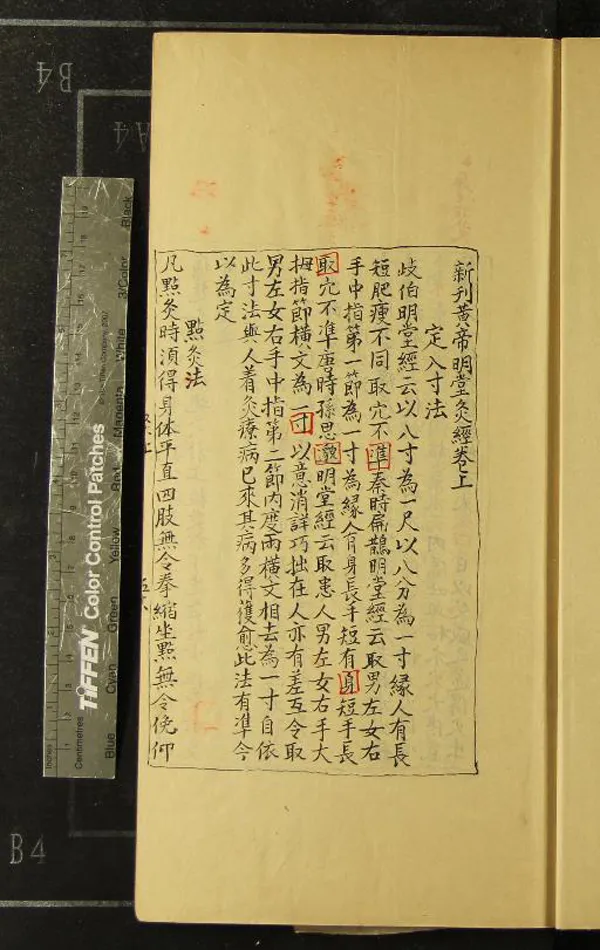 新刋黄帝明堂灸經卷上
定入寸法
岐伯明堂經云以八寸為一尺以八分為一寸緣人有長
短肥瘦不同取穴不準秦時扁鵲明堂經云取男左女右
手中指第一節為一寸為緣人有身長手短有身短手長
取穴不準唐時孫思邈明堂經云取患人男左女右手大
拇指節橫文為一寸以意消詳巧拙在人亦有差互令取
男左女右手中指第二節内度兩橫文相去為一寸自依
此寸法與人着灸療病已來其病多得獲愈此法有準今
以為定
點灸法
凡點灸時須得身体平直四肢無令拳縮坐點無令俛仰
B4
A4
B4
TIFFEN Color Control Patches
© The Tiffen Company, 2007
Blue
Cyan
Green
Yellow
Red
Magenta
White
3/Color
Black
Inches
Centimetres